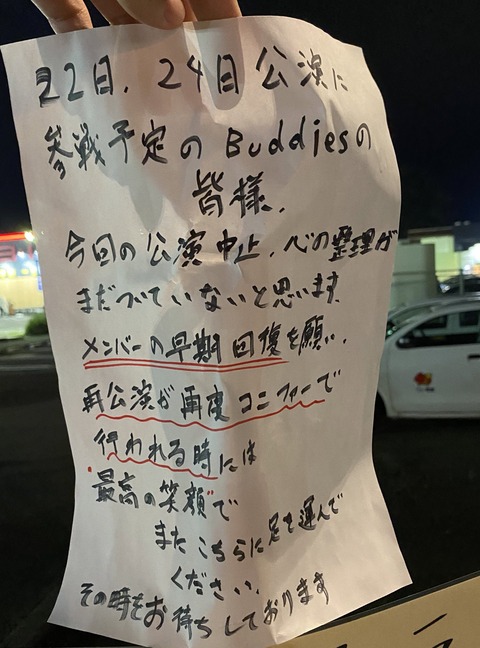 22日、24日公演に
参戦予定のBuddiesの
皆様、
今回の公演中止、心の整理が
まだついていないと思います
メンバーの早期回復を願い、
再公演が再度コニファーで
行われる時には
最高の笑顔で
またこちらに足を運んで
ください、
その時をお待ちしております